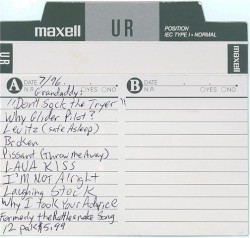 maxell UR POSITION
IEC TYPE I • NORMAL
maxell UR
A DATE 7/96 N.R. YES NO
B DATE N.R. YES NO
Grandaddy:
"Don't Sock the Tryer"
Why Glider Pilot?
Levitz (Safe Asleep)
Broken
Pissant (Throw Me Away)
LAVA KISS
I'M NOT Alright
Laughing Stock
Why I Took Your Advice
Formerly the Rattlesnake Song
12 pak $5.99